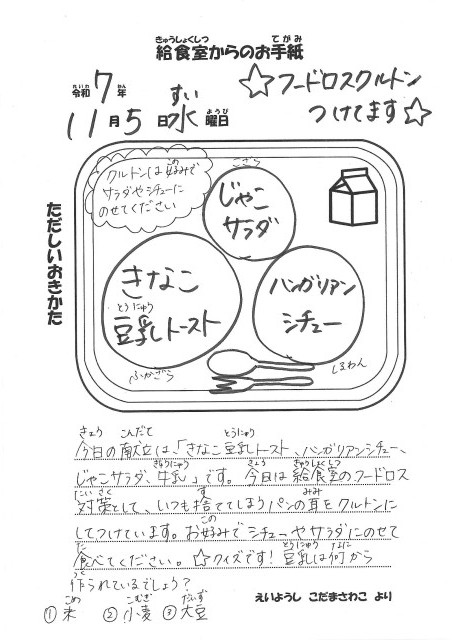 きゅうしょくしつ てがみ
給食室からのお手紙
れいわ ねん すい ようび
令和7年
11月5日水曜日
☆フードロスクルトン
つけてます☆
ただしいおきかた
クルトンは好みで
サラダやシチューに
のせてください
こざら
じゃこ
サラダ
きなこ
とうにゅう
豆乳トースト
ふかざら
ハンガリアン
シチュー
しるわん
きょう こんだて とうにゅう
今日の献立は、「きなこ豆乳トースト、ハンガリアンシチュー、
ぎゅうにゅう きょう きゅうしょくしつ
じゃこサラダ、牛乳」です。今日は給食室のフードロス
たいさく す みみ
対策として、いつも捨ててしまうパンの耳をクルトンに
この
してつけています。お好みでシチューやサラダにのせて
た とうにゅう なに
食べてください。☆クイズです！豆乳は何から
つく
作られているでしょう？
こめ こむぎ だいず
①米 ②小麦 ③大豆
えいようし こだまさわこ より